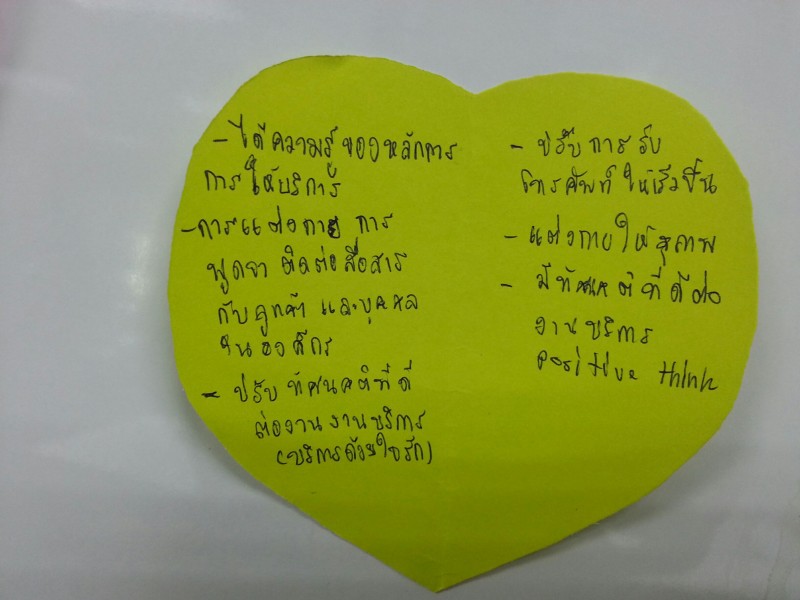 - ได้ความรู้ของหลักการ
การให้บริการ
- การแต่งกาย การ
พูดจา ติดต่อสื่อสาร
กับลูกค้า และบุคคล
ในองค์กร
- ปรับทัศนคติที่ดี
ต่องานงานบริการ
(บริการด้วยใจรัก)
- ปรับการรับ
โทรศัพท์ให้เร็วขึ้น
- แต่งกายให้สุภาพ
- มีทัศนคติที่ดีต่อ
งานบริการ
Positive think